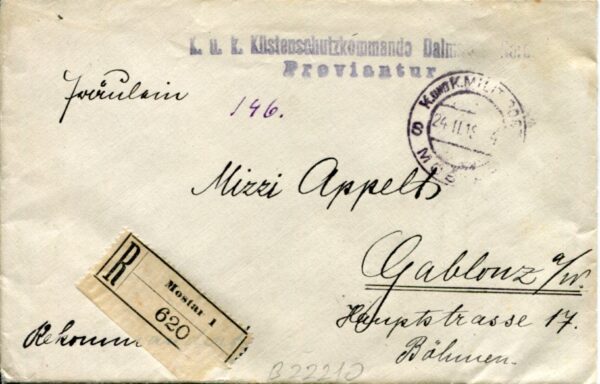 K. u. k. Küstenschutzkommando
Proviantur
Fräulein
146.
K. UND K. MILIT.
24. II. 1
Mizzi Appelt
Gablonz a/N.
Hauptstrasse 17.
Böhmen.
R
Mostar 1
620
B22210